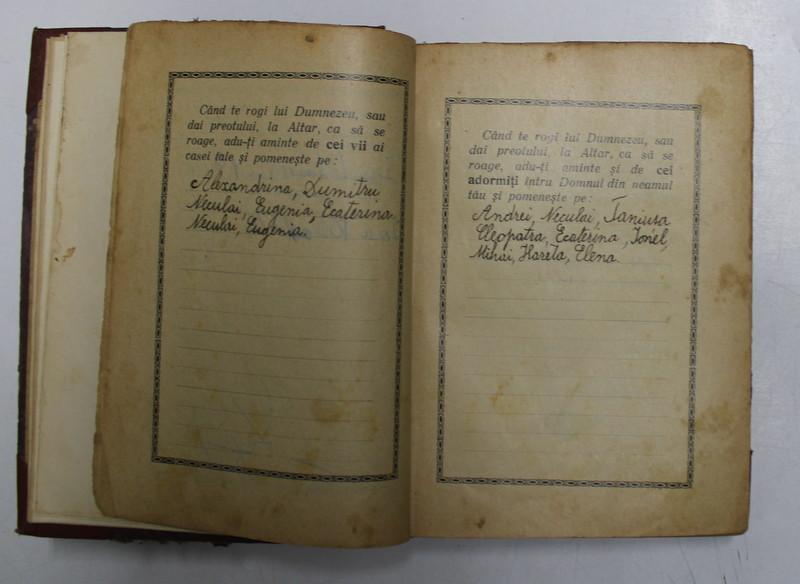 Când te rogi lui Dumnezeu, sau
dai preotului, la Altar, ca să se
roage, adu-ți aminte de cei vii ai
casei tale și pomenește pe:
Alexandrina, Dumitru
Neculai, Eugenia, Ecaterina.
Neculai, Eugenia.
Când te rogi lui Dumnezeu, sau
dai preotului, la Altar, ca să se
roage, adu-ți aminte și de cei
adormiți întru Domnul din neamul
tău și pomenește pe:
Andrei, Neculai,
Cleopatra, Ecaterina, Ionel,
Mihai, Hareta, Elena.